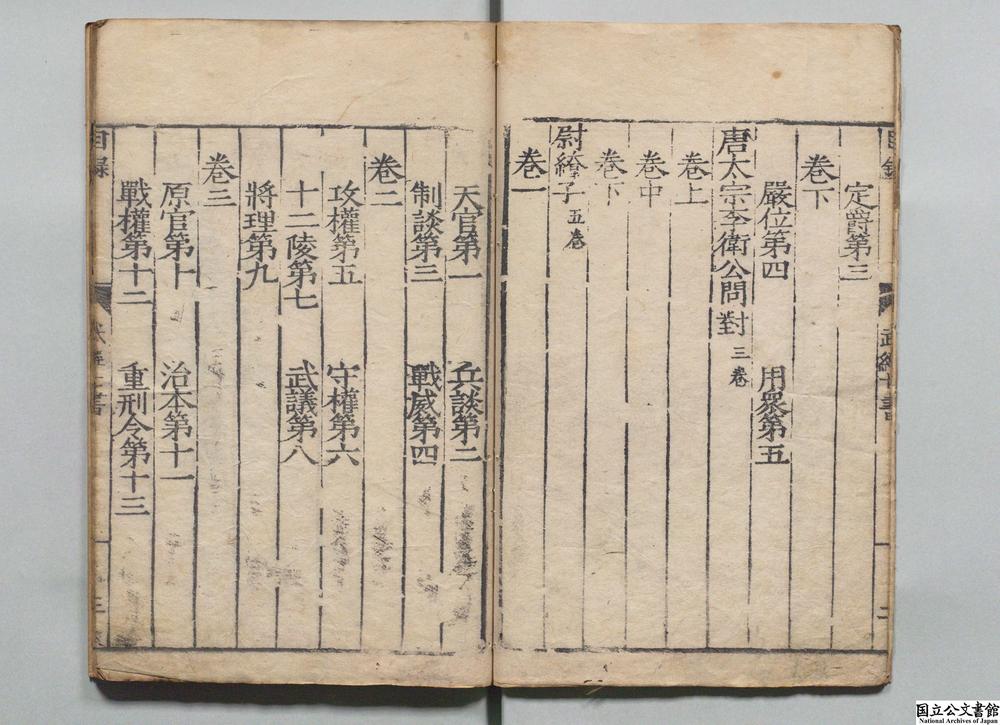 定爵第三
卷下
嚴位第四 用衆第五
唐太宗李衛公問對 三卷
卷上
卷中
卷下
尉繚子 五卷
卷一
天官第一 兵談第二
制談第三 戰威第四
卷二
攻權第五 守權第六
十二陵第七 武議第八
將理第九
卷三
原官第十 治本第十一
戰權第十二 重刑令第十三
目録
三
目録
武經七書
二
国立公文書館
National Archives of Japan